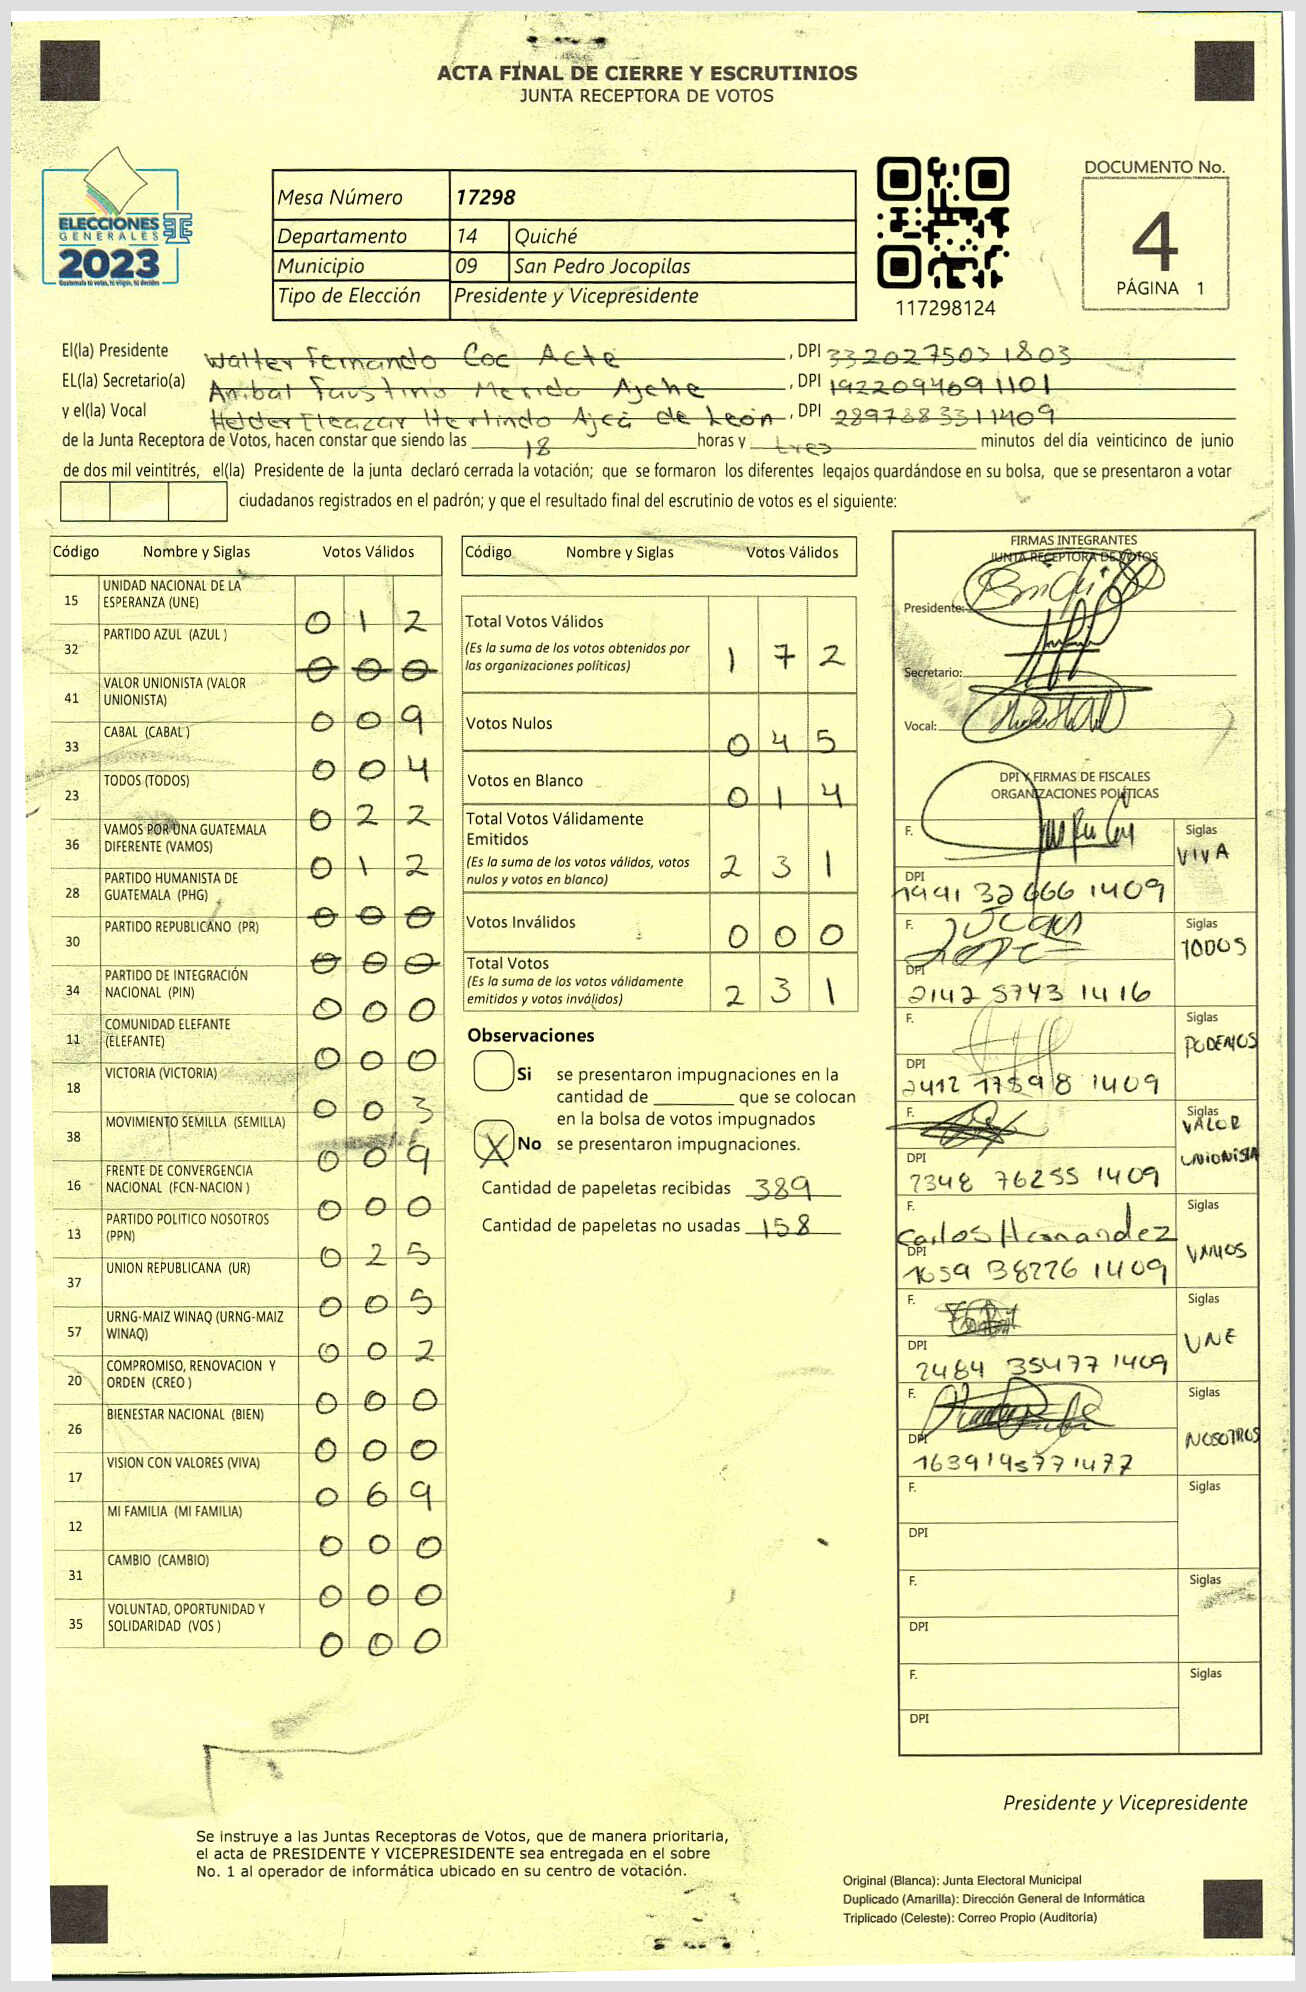 ACTA FINAL DE CIERRE Y ESCRUTINIOS
JUNTA RECEPTORA DE VOTOS
ELECCIONES
GENERALES
2023
Guatemala tú votas, tú eliges, tú decides
Mesa Número 17298
Departamento 14 Quiché
Municipio 09 San Pedro Jocopilas
Tipo de Elección Presidente y Vicepresidente
117298124
DOCUMENTO No.
4
PÁGINA 1
El(la) Presidente Walter Fernando Coc Acte, DPI 332027503 1803
EL(la) Secretario(a) Anibal Faustino Merida Ajche, DPI 192209469 1101
y el(la) Vocal Helder Eleazar Herlindo Ajca de León, DPI 289788331 1409
de la Junta Receptora de Votos, hacen constar que siendo las 18 horas y tres minutos del día veinticinco de junio
de dos mil veintitrés, el(la) Presidente de la junta declaró cerrada la votación; que se formaron los diferentes legajos guardándose en su bolsa, que se presentaron a votar
ciudadanos registrados en el padrón; y que el resultado final del escrutinio de votos es el siguiente:
Código Nombre y Siglas Votos Válidos
15 UNIDAD NACIONAL DE LA
ESPERANZA (UNE) 0 1 2
32 PARTIDO AZUL (AZUL ) 0 0 0
41 VALOR UNIONISTA (VALOR
UNIONISTA) 0 0 9
33 CABAL (CABAL ) 0 0 4
23 TODOS (TODOS) 0 2 2
36 VAMOS POR UNA GUATEMALA
DIFERENTE (VAMOS) 0 1 2
28 PARTIDO HUMANISTA DE
GUATEMALA (PHG) 0 0 0
30 PARTIDO REPUBLICANO (PR) 0 0 0
34 PARTIDO DE INTEGRACIÓN
NACIONAL (PIN) 0 0 0
11 COMUNIDAD ELEFANTE
(ELEFANTE) 0 0 0
18 VICTORIA (VICTORIA) 0 0 3
38 MOVIMIENTO SEMILLA (SEMILLA) 0 0 9
16 FRENTE DE CONVERGENCIA
NACIONAL (FCN-NACION ) 0 0 0
13 PARTIDO POLITICO NOSOTROS
(PPN) 0 2 5
37 UNION REPUBLICANA (UR) 0 0 5
57 URNG-MAIZ WINAQ (URNG-MAIZ
WINAQ) 0 0 2
20 COMPROMISO, RENOVACION Y
ORDEN (CREO ) 0 0 0
26 BIENESTAR NACIONAL (BIEN) 0 0 0
17 VISION CON VALORES (VIVA) 0 6 9
12 MI FAMILIA (MI FAMILIA) 0 0 0
31 CAMBIO (CAMBIO) 0 0 0
35 VOLUNTAD, OPORTUNIDAD Y
SOLIDARIDAD (VOS ) 0 0 0
Código Nombre y Siglas Votos Válidos
Total Votos Válidos
(Es la suma de los votos obtenidos por
las organizaciones políticas) 1 7 2
Votos Nulos 0 4 5
Votos en Blanco 0 1 4
Total Votos Válidamente
Emitidos
(Es la suma de los votos válidos, votos
nulos y votos en blanco) 2 3 1
Votos Inválidos 0 0 0
Total Votos
(Es la suma de los votos válidamente
emitidos y votos inválidos) 2 3 1
Observaciones
Si se presentaron impugnaciones en la
cantidad de ________ que se colocan
en la bolsa de votos impugnados
X No se presentaron impugnaciones.
Cantidad de papeletas recibidas 389
Cantidad de papeletas no usadas 158
FIRMAS INTEGRANTES
JUNTA RECEPTORA DE VOTOS
Presidente:
Secretario:
Vocal:
DPI Y FIRMAS DE FISCALES
ORGANIZACIONES POLÍTICAS
F. Siglas
VIVA
DPI
1991 32666 1409
F. Siglas
TODOS
DPI
2142 5743 1416
F. Siglas
PODEMOS
DPI
2412 17598 1409
F. Siglas
VALOR
UNIONISTA
DPI
2348 76255 1409
F. Carlos Hernandez Siglas
VAMOS
DPI
1659 38226 1409
F. Siglas
UNE
DPI
2484 35477 1409
F. Siglas
NOSOTROS
DPI
1639195771477
F. Siglas
DPI
F. Siglas
DPI
F. Siglas
DPI
Presidente y Vicepresidente
Se instruye a las Juntas Receptoras de Votos, que de manera prioritaria,
el acta de PRESIDENTE Y VICEPRESIDENTE sea entregada en el sobre
No. 1 al operador de informática ubicado en su centro de votación.
Original (Blanca): Junta Electoral Municipal
Duplicado (Amarilla): Dirección General de Informática
Triplicado (Celeste): Correo Propio (Auditoría)